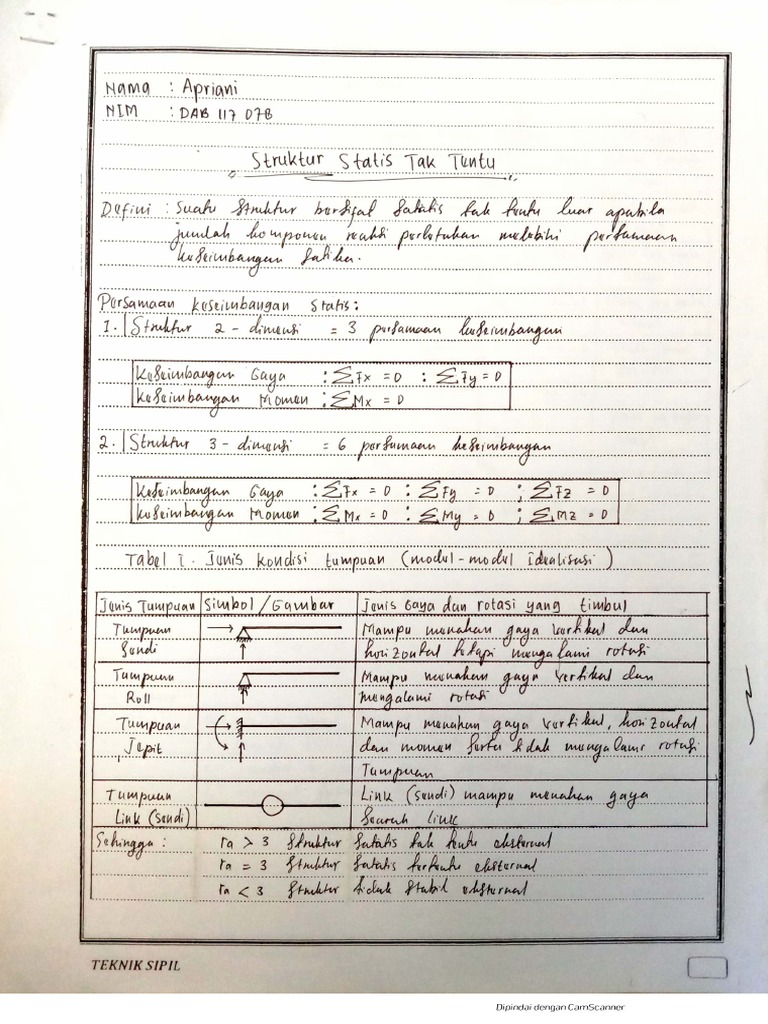 Nama : Apriani
NIM : DAB 117 078
Struktur Statis Tak Tentu
Defini : Suatu Struktur bersifat Statis tak tentu luar apabila
jumlah komponen reaksi perletakan melebihi persamaan
keseimbangan Statika.
Persamaan keseimbangan Statis :
1. Struktur 2 - dimensi = 3 persamaan keseimbangan
Keseimbangan Gaya : ∑Fx = 0 : ∑Fy = 0
Keseimbangan Momen : ∑Mx = 0
2. Struktur 3 - dimensi = 6 persamaan keseimbangan
Keseimbangan Gaya : ∑Fx = 0 : ∑Fy = 0 ; ∑Fz = 0
Keseimbangan Momen : ∑Mx = 0 : ∑My = 0 ; ∑Mz = 0
Tabel 1. Jenis kondisi tumpuan (model-model Idealisasi)
Jenis Tumpuan Simbol / Gambar Jenis Gaya dan rotasi yang timbul
Tumpuan Mampu menahan gaya vertikal dan
Sendi horizontal tetapi mengalami rotasi
Tumpuan Mampu menahan gaya vertikal dan
Roll mengalami rotasi
Tumpuan Mampu menahan gaya vertikal, horizontal
Jepit dan momen serta tidak mengalami rotasi
Tumpuan
Tumpuan Link (sendi) mampu menahan gaya
Link (sendi) Searah link
Sehingga : ra > 3 Struktur Statis tak tentu eksternal
ra = 3 Struktur Statis tertentu eksternal
ra < 3 Struktur tidak Stabil eksternal
TEKNIK SIPIL
Dipindai dengan CamScanner